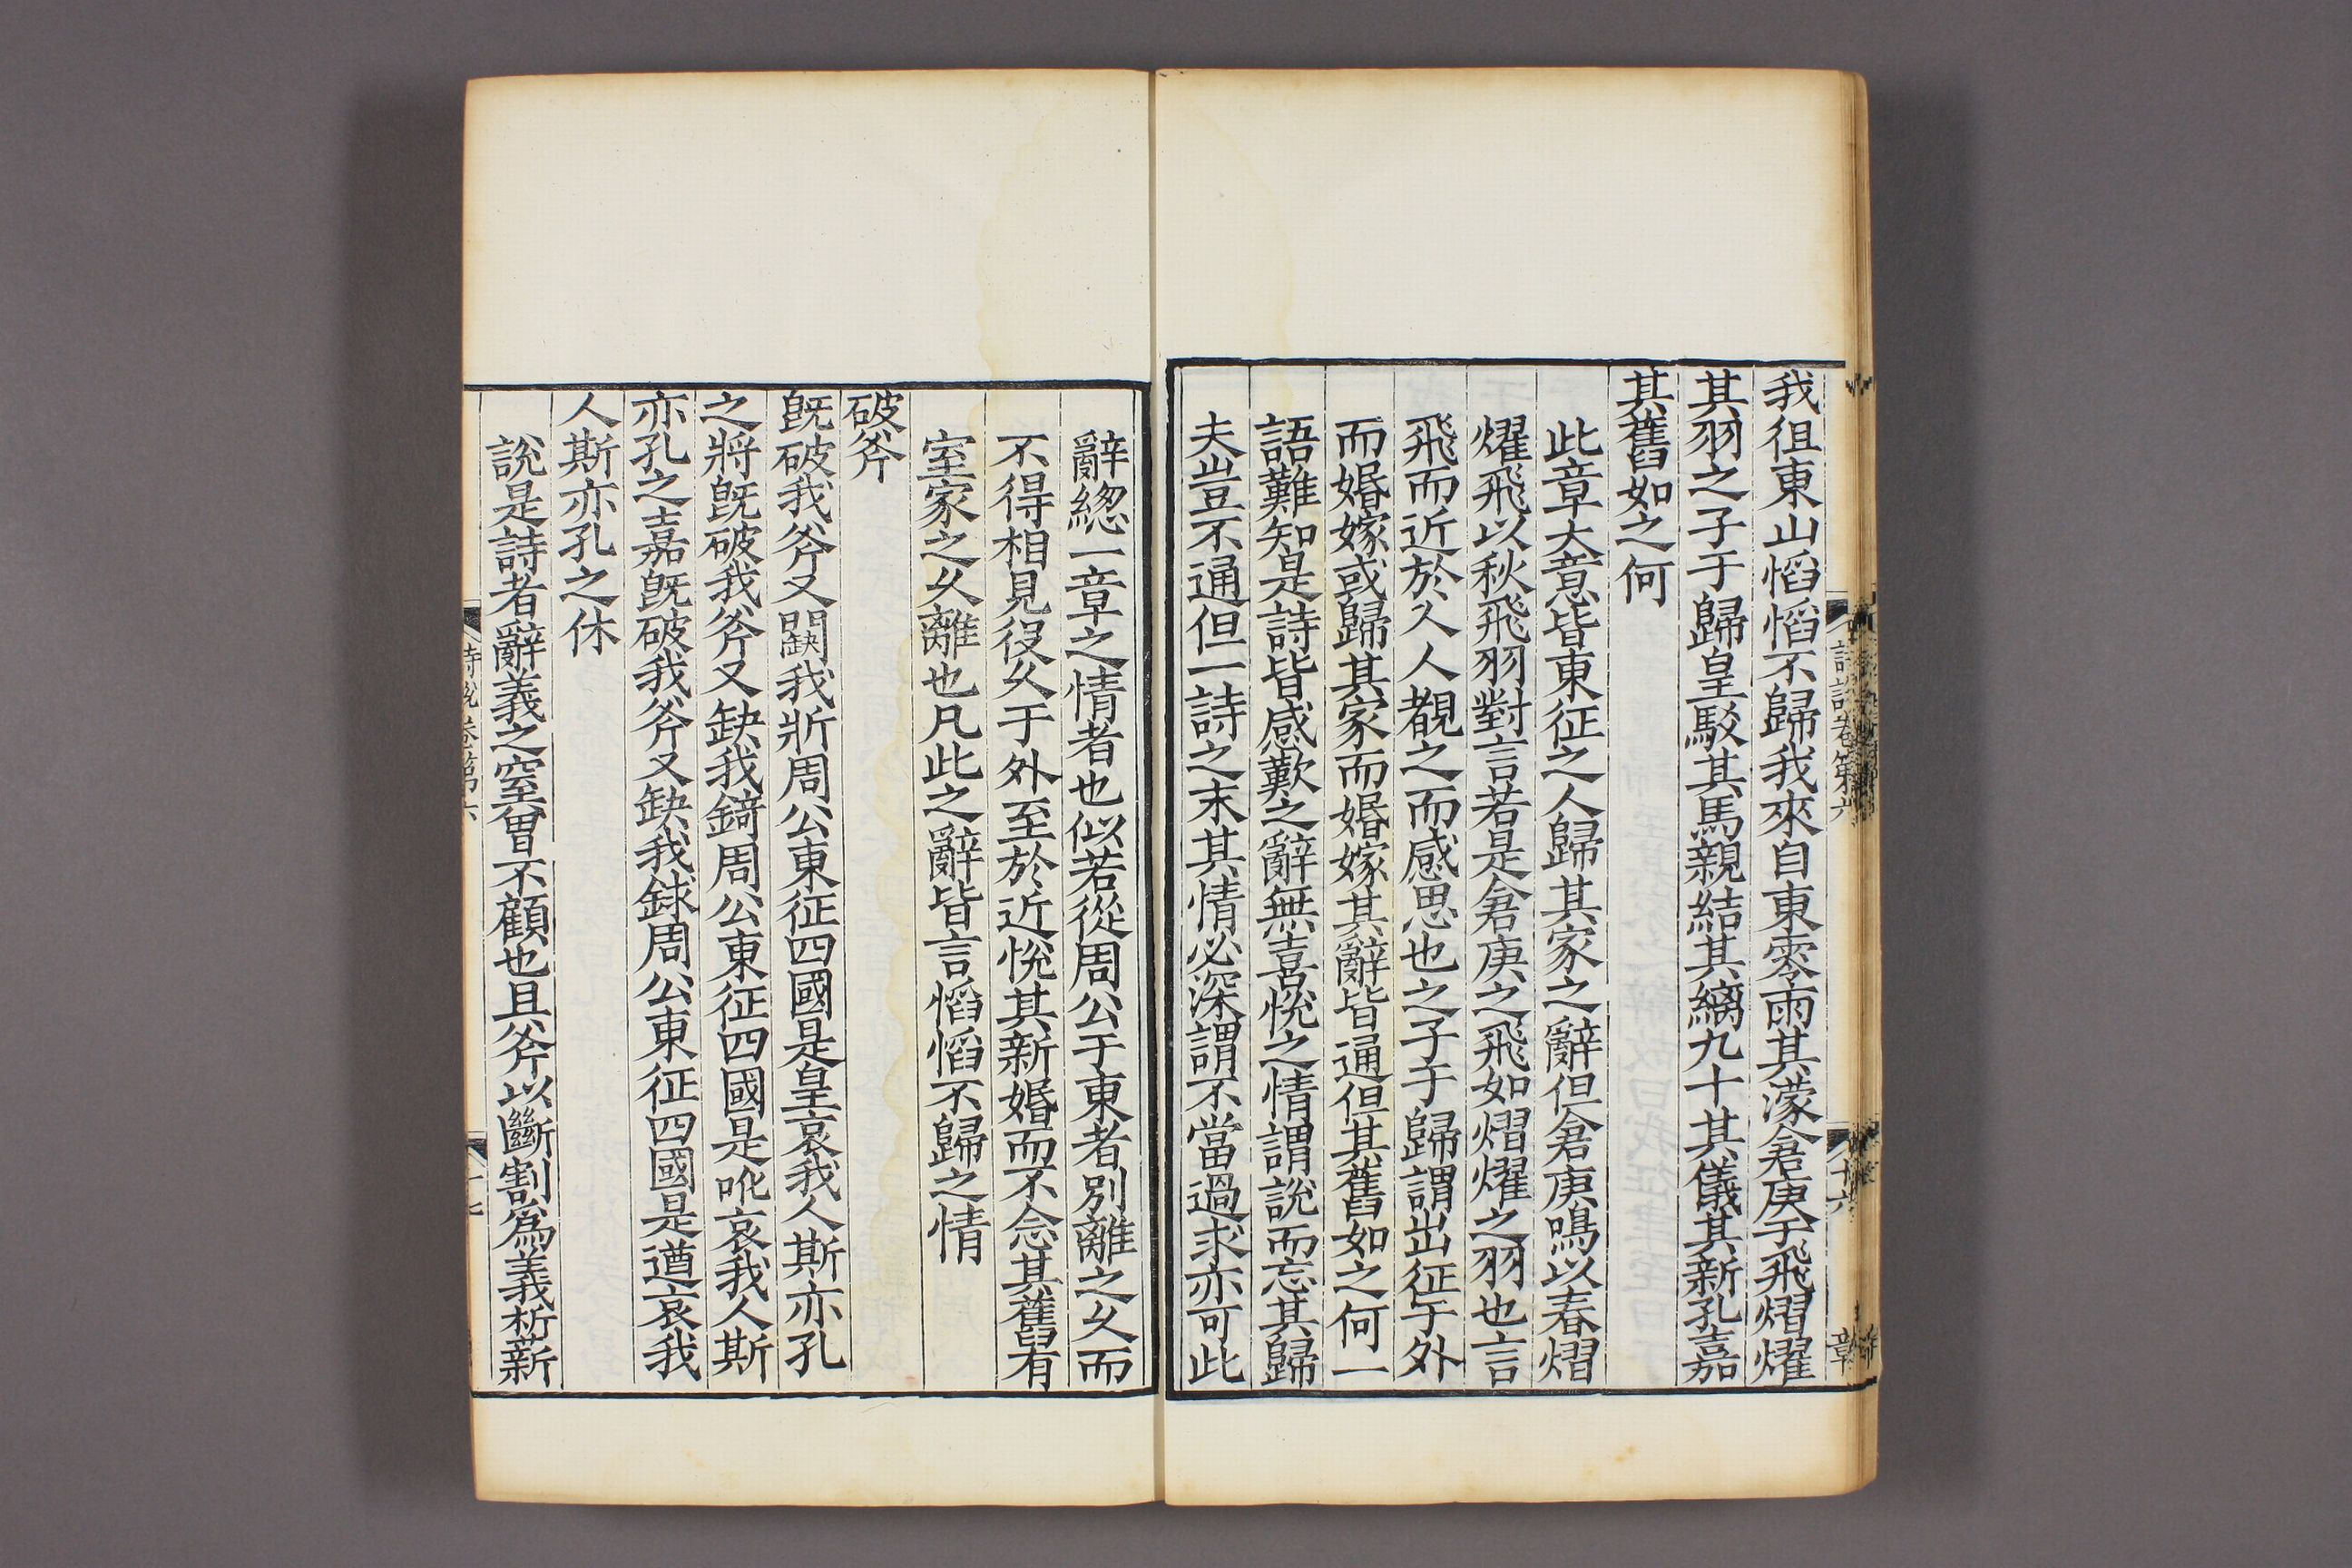 我徂東山慆慆不歸我來自東零雨其濛倉庚于飛熠燿
其羽之子于歸皇駁其馬親結其縭九十其儀其新孔嘉
其舊如之何
此章大意皆東征之人歸其家之辭但倉庚鳴以春熠
燿飛以秋飛羽對言若是倉庚之飛如熠燿之羽也言
飛而近於久人覩之而感思也之子于歸謂出征于外
而婚嫁或歸其家而婚嫁其辭皆通但其舊如之何一
語難知是詩皆感歎之辭無喜悅之情謂說而忘其歸
夫豈不通但一詩之末其情必深謂不當過求亦可此
詩說卷第六
十六
辭緫一章之情者也似若從周公于東者別離之久而
不得相見役久于外至於近悅其新婚而不念其舊有
室家之久離也凡此之辭皆言慆慆不歸之情
破斧
旣破我斧又闕我斨周公東征四國是皇哀我人斯亦孔
之將旣破我斧又缺我錡周公東征四國是吪哀我人斯
亦孔之嘉旣破我斧又缺我銶周公東征四國是遒哀我
人斯亦孔之休
說是詩者辭義之窒曾不顧也且斧以斷割爲義析薪
詩說卷第六
十七